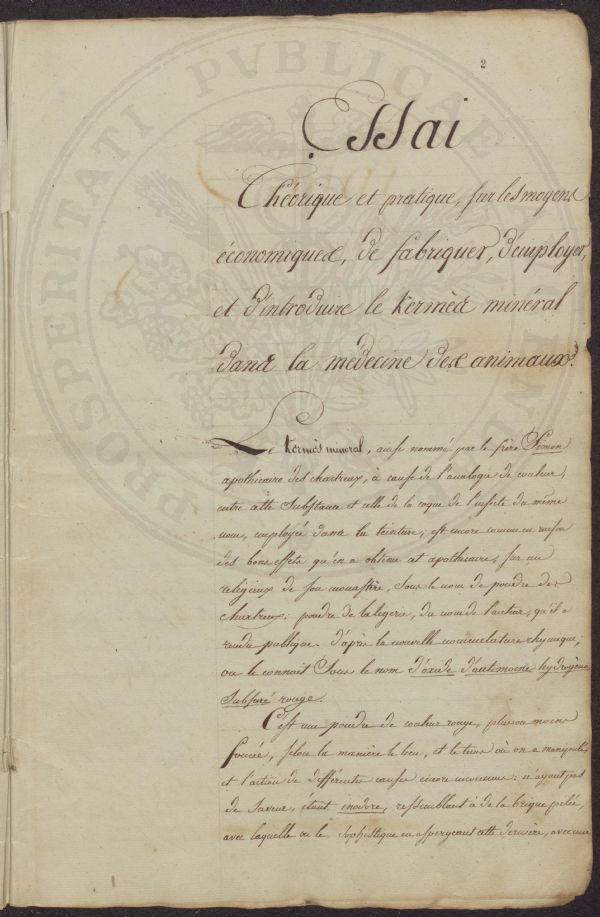 PROSPERITATI PVBLICAE
2
Essai
Théorique et pratique, sur les moyens
économiques, de fabriquer, d'employer,
et d'introduire le kermès minéral
dans la médecine des animaux.
Le kermès minéral, ainsi nommé par le frère Simon
apothicaire des chartreux, à cause de l'analogie de couleur,
entre cette substance et celle de la coque de l'insecte du même
nom, employée dans la teinture, est encore connu en raison
des bons effets qu'en a obtenu cet apothicaire, sur un
religieux de son monastère, sous le nom de poudre des
chartreux; poudre de la legerie, du nom de l'auteur, qu'il a
rendu publique. d'après la nouvelle nomenclature chymique,
on le connait sous le nom d'oxide d'antimoine hydrogène
sulfuré rouge.
C'est une poudre de couleur rouge, plus ou moins
foncée, selon la manière le lieu, et le tems où on a manipulé
et l'action de différentes causes encore inconnues: n'ayant pas
de saveur, étant inodore, ressemblant à de la brique pilée,
avec laquelle on le sophistique en aspergeant cette dernière, avec une